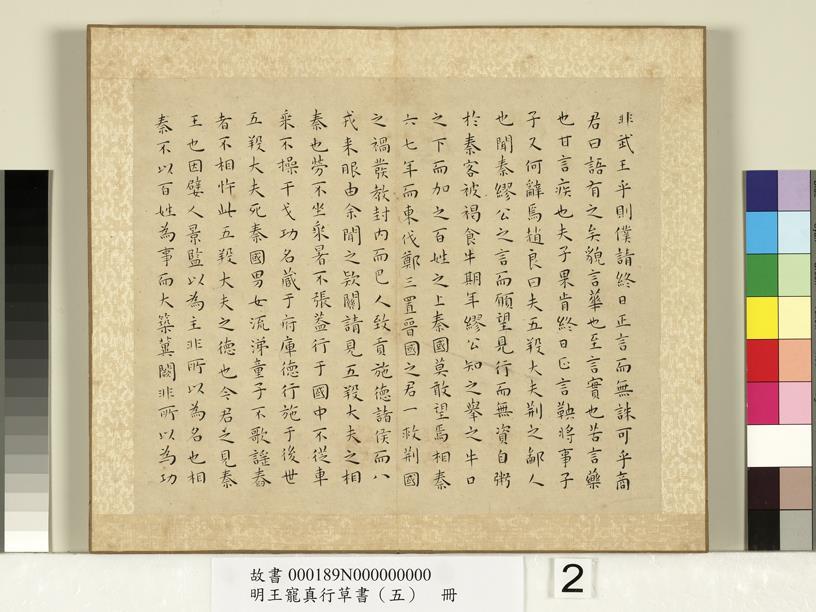 非武王乎則僕請終日正言而無誅可乎商
君曰語有之矣貌言華也至言實也苦言藥
也甘言疾也夫子果肯終日正言鞅將事子
子又何辭焉趙良曰夫五羖大夫荆之鄙人
也聞秦繆公之言而願望見行而無資自粥
於秦客被褐食牛期年繆公知之舉之牛口
之下而加之百姓之上秦國莫敢望焉相秦
六七年而東伐鄭三置晉國之君一救荆國
之禍發教封内而巴人致貢施德諸侯而八
戎来眼由余聞之欵關請見五羖大夫之相
秦也勞不坐乘暑不張蓋行于國中不從車
乘不操干戈功名藏于府庫德行施于後世
五羖大夫死秦國男女流涕童子不歌謡舂
者不相忤此五羖大夫之德也今君之見秦
王也因嬖人景監以為主非所以為名也相
秦不以百姓為事而大築冀闕非所以為功
故書 000189N000000000
明王寵真行草書（五） 冊
2